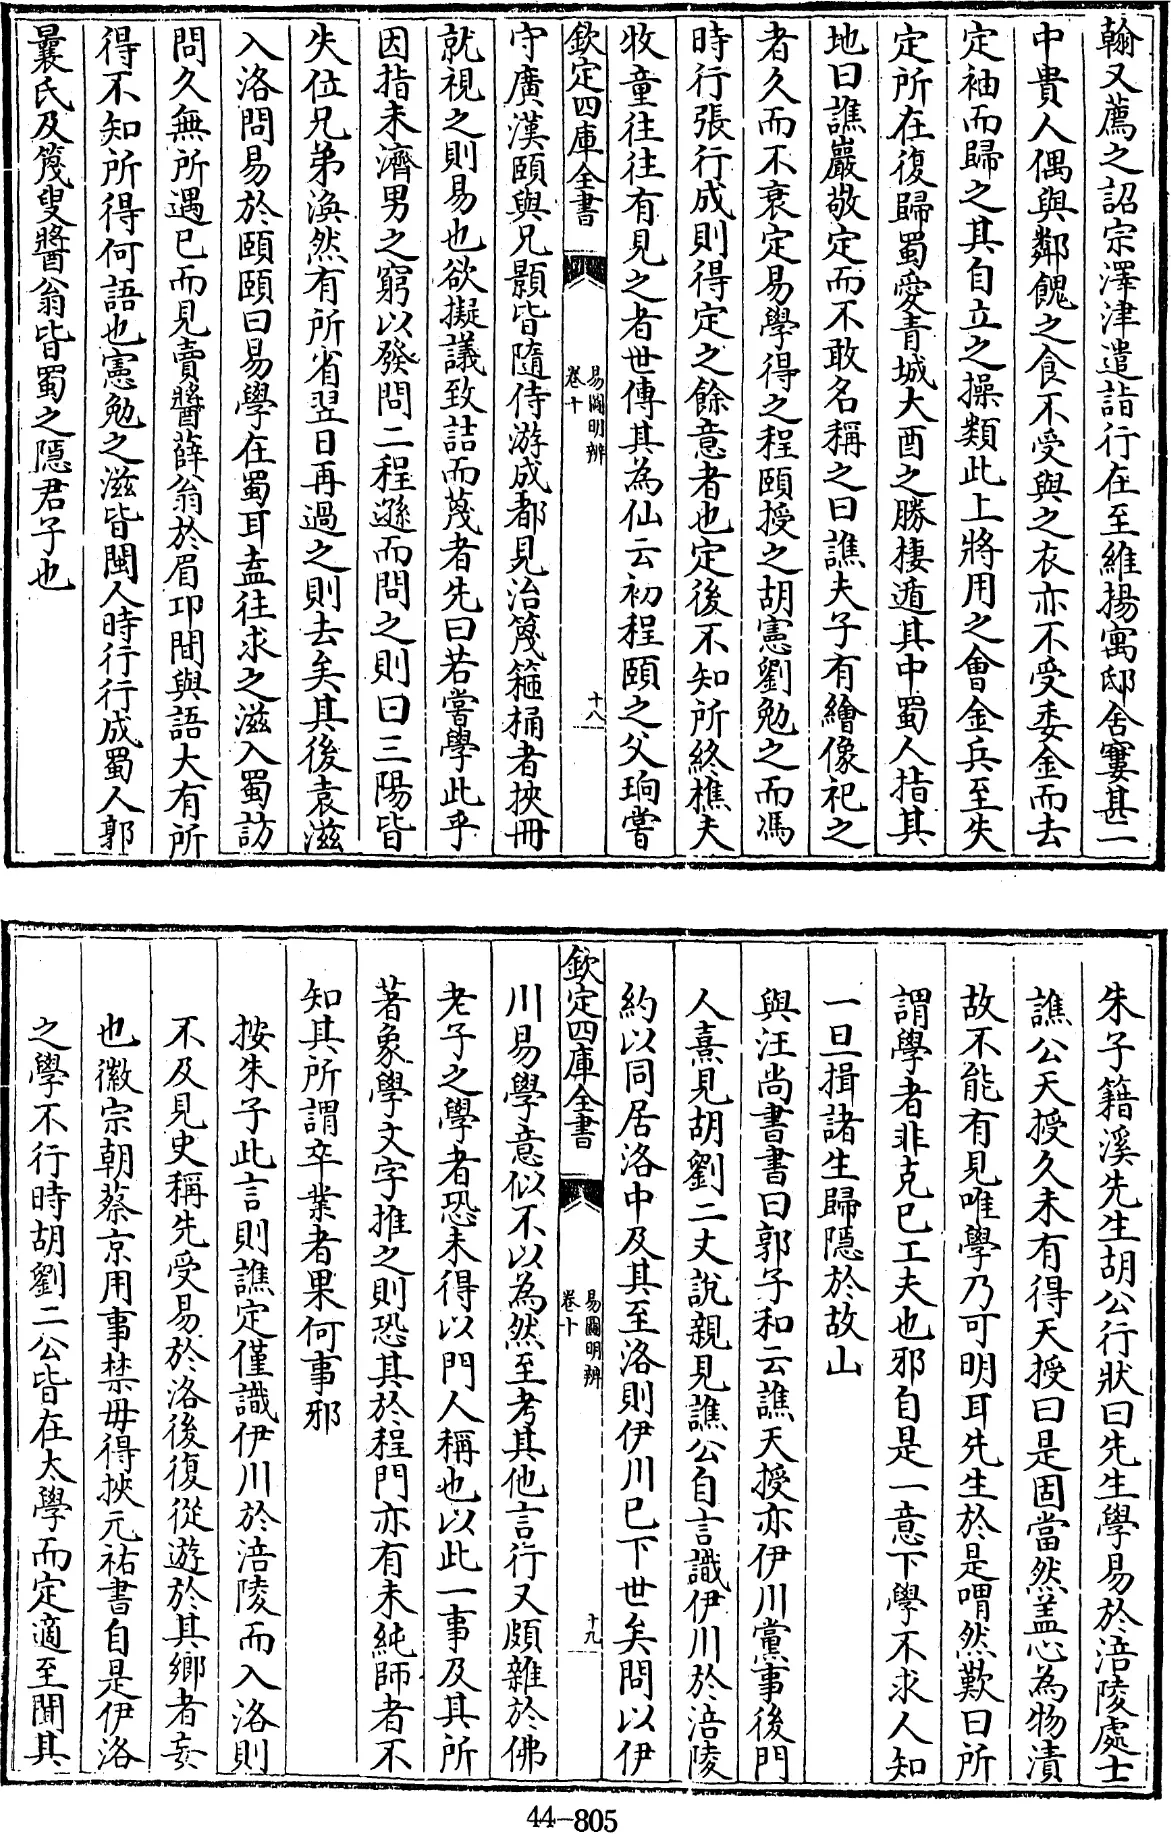 翰又薦之詔宗澤津遣詣行在至維揚寓邸舍窶甚一
中貴人偶與鄰餽之食不受與之衣亦不受委金而去
定袖而歸之其自立之操類此上將用之會金兵至失
定所在復歸蜀愛青城大酉之勝棲遁其中蜀人指其
地曰譙巖敬定而不敢名稱之曰譙夫子有繪像祀之
者久而不衰定易學得之程頤授之胡憲劉勉之而馮
時行張行成則得定之餘意者也定後不知所終樵夫
牧童往往有見之者世傳其為仙云初程頤之父珦嘗
欽定四庫全書
易圖明辨
卷十
十八
守廣漢頤與兄顥皆隨侍游成都見治篾箍桶者挾冊
就視之則易也欲擬議致詰而篾者先曰若嘗學此乎
因指未濟男之窮以發問二程遜而問之則曰三陽皆
失位兄弟渙然有所省翌日再過之則去矣其後袁滋
入洛問易於頤頤曰易學在蜀耳盍往求之滋入蜀訪
問久無所遇已而見賣醬薛翁於眉卭間與語大有所
得不知所得何語也憲勉之滋皆閩人時行行成蜀人郭
曩氏及篾叟醬翁皆蜀之隱君子也
朱子籍溪先生胡公行狀曰先生學易於涪陵處士
譙公天授久未有得天授曰是固當然盖心為物漬
故不能有見唯學乃可明耳先生於是喟然歎曰所
謂學者非克己工夫也邪自是一意下學不求人知
一旦揖諸生歸隱於故山
與汪尚書書曰郭子和云譙天授亦伊川黨事後門
人熹見胡劉二丈說親見譙公自言識伊川於涪陵
約以同居洛中及其至洛則伊川已下世矣問以伊
欽定四庫全書
易圖明辨
卷十
十九
川易學意似不以為然至考其他言行又頗雜於佛
老子之學者恐未得以門人稱也以此一事及其所
著象學文字推之則恐其於程門亦有未純師者不
知其所謂卒業者果何事邪
按朱子此言則譙定僅識伊川於涪陵而入洛則
不及見史稱先受易於洛後復從遊於其鄉者妄
也徽宗朝蔡京用事禁毋得挾元祐書自是伊洛
之學不行時胡劉二公皆在太學而定適至聞其
44-805